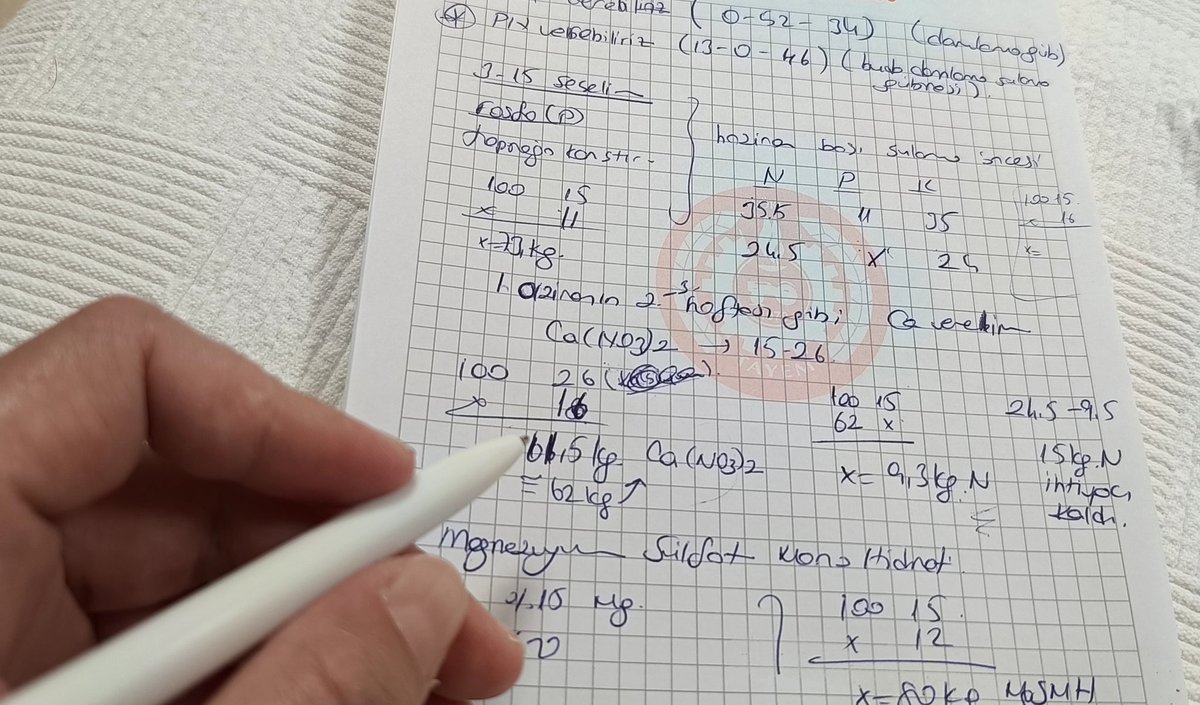 (0-52-34) (damlama güb)
verebiliriz (13-0-46) (bu da damlama sulama gübresi).
3-15 seçelim
100 15
x 11
x=73 kg.
haziran başı sulama öncesi
N P K
35.5 11 35
24.5 X 24
100 15
x 16
x=
haziranın 2-3 haftası gibi Ca verelim
Ca(NO3)2 → 15-26
100 26
x 16
61,5 kg Ca(NO3)2
= 62 kg
100 15
62 x
x= 9,3 kg N
24.5-9.5
15 kg N
ihtiyacı
kaldı.
Magnezyum Sülfat Mono Hidrat
%15 Mg.
100 15
x 12
x=80 kg MgSMH